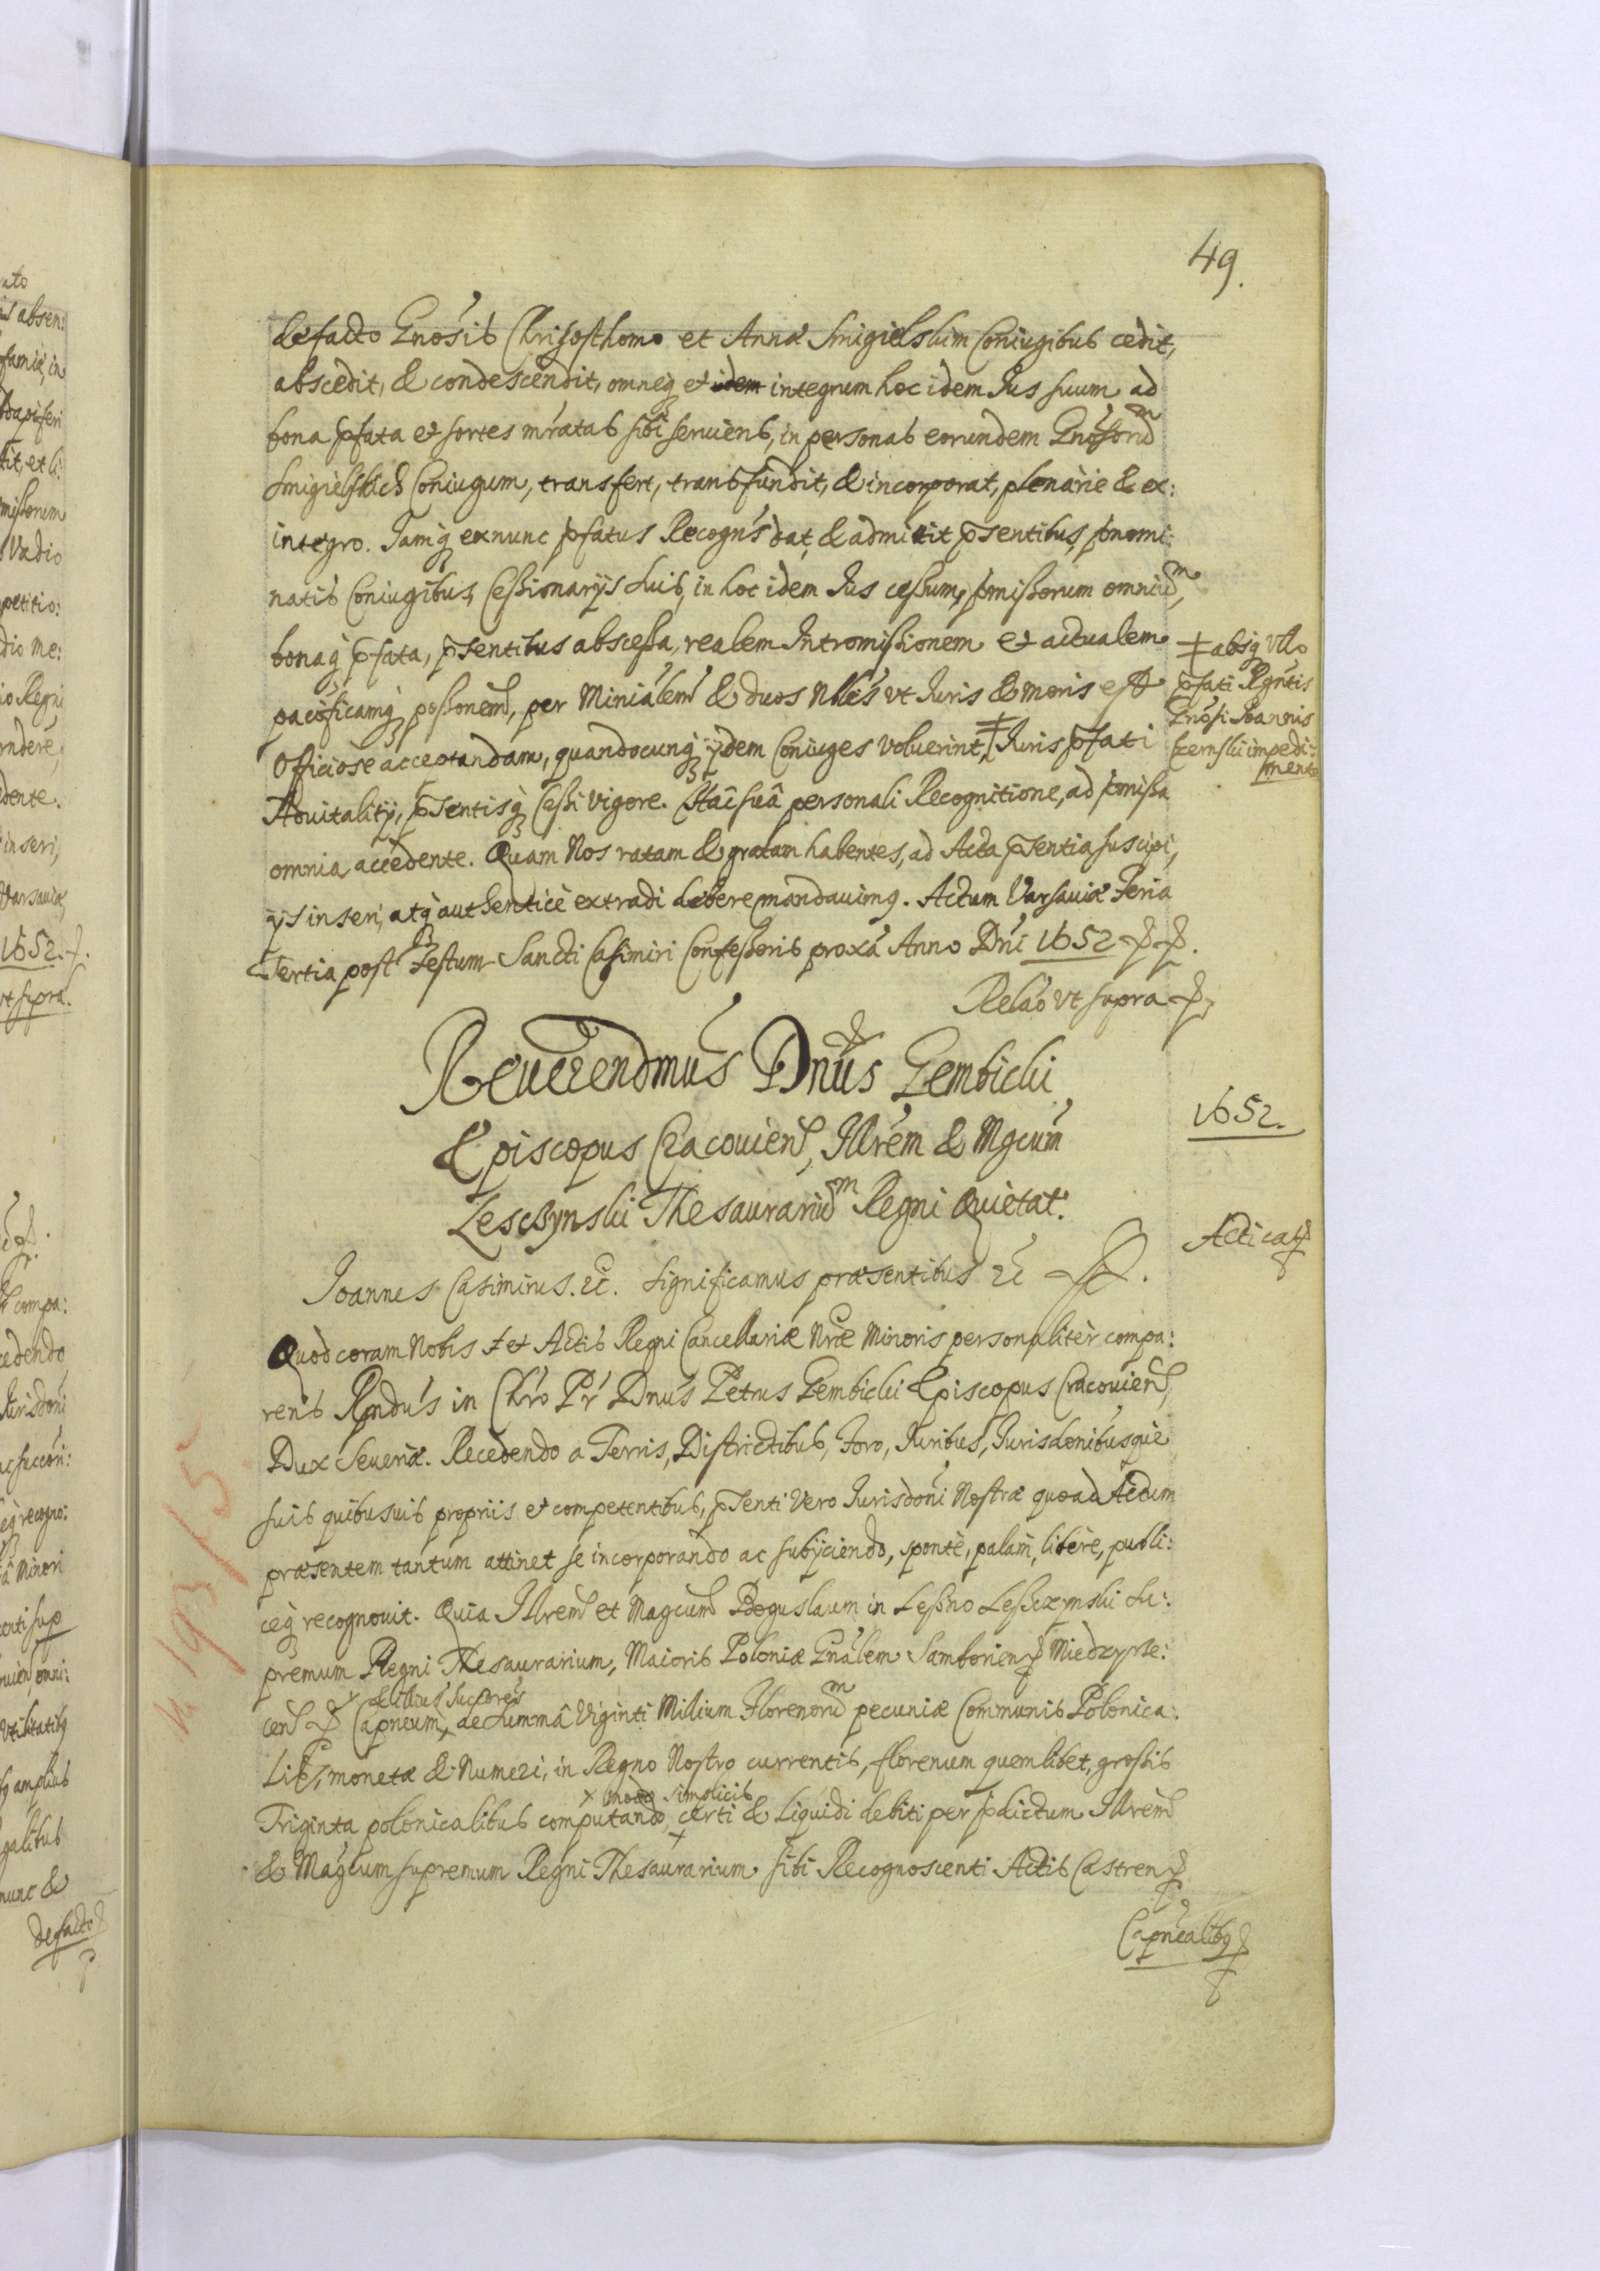 49.
defacto Gnosis Chrisosthomo et Annæ Smigielskim Coniugibus cedit,
abscedit, & condescendit, omneq et idem integrum hoc idem Ius suum ad
bona pfata et sortes mratas sibi seruiens, in personas eorundem Gnosorum
Smigielskich Coniugum, transfert, transfundit, & incorporat, plenarie & ex:
integro. Iamq exnunc pfatus Recogns dat, & admittit psentibus, pnomi:
natis Coniugibus, Cessionarijs suis, in hoc idem Ius cessum, pmissorum omnium,
bonaq pfata, psentibus abscessa, realem Intromissionem et actualem
pacificamq possonem, per Minialem & duos Nbles vt Iuris & moris est
Officiose acceptandam, quandocunq ijdem Coniuges voluerint, ‡ Iuris pfati
‡ absq vllo
pfati Rgntis
Gnosi Ioannis
impedi:
mento
Aduitalitij, psentisq Cessi vigore. Stae suâ personali Recognitione, ad pmissa
omnia accedente. Quam Nos ratam & gratam habentes, ad Acta psentia suscipi,
ijs inseri, atq authentice extradi debere mandauimq. Actum Varsauiæ Feria
Tertia post Festum Sancti Casimiri Confessoris proxa Anno Dni 1652
Relao vt supra
Reuerendmus Dnus Gembicki
Episcopus Cracouien, Illrem & Mgcum
Lesczynski Thesaurarium Regni Quietat.
1652.
Acticat
Ioannes Casimirus. &c. Significamus præsentibus &c
Quod coram Nobis et Actis Regni Cancellariæ Nræ Minoris personaliter compa:
rens Rndus in Chro Pr Dnus Petrus Gembicki Episcopus Cracouien,
Dux Seueriæ. Recedendo a Terris, Districtibus, Foro, Iuribus, Iurisdonibusque
suis quibusuis propriis et competentibus, psenti vero Iurisdoni Nostræ quoad Actum
præsentem tantum attinet se incorporando ac subijciendo, sponte, palam, libere, publi:
ceq recognouit. Quia Illrem et Magcum Boguslaum in Leszno Leszczynski Su:
premum Regni Thesaurarium, Maioris Poloniæ Gnalem Samborien Miedzyrze:
cen Capneum, × eiusq Succres de summâ Viginti Milium Florenorum pecuniæ Communis Polonica:
lis, monetæ & Numeri, in Regno Nostro currentis, florenum quemlibet, grossis
Triginta polonicalibus computando, × modo simplicis certi & liquidi debiti per pdictum Illrem
& Magcum supremum Regni Thesaurarium sibi Recognoscenti Actis Castren
Capnealibq